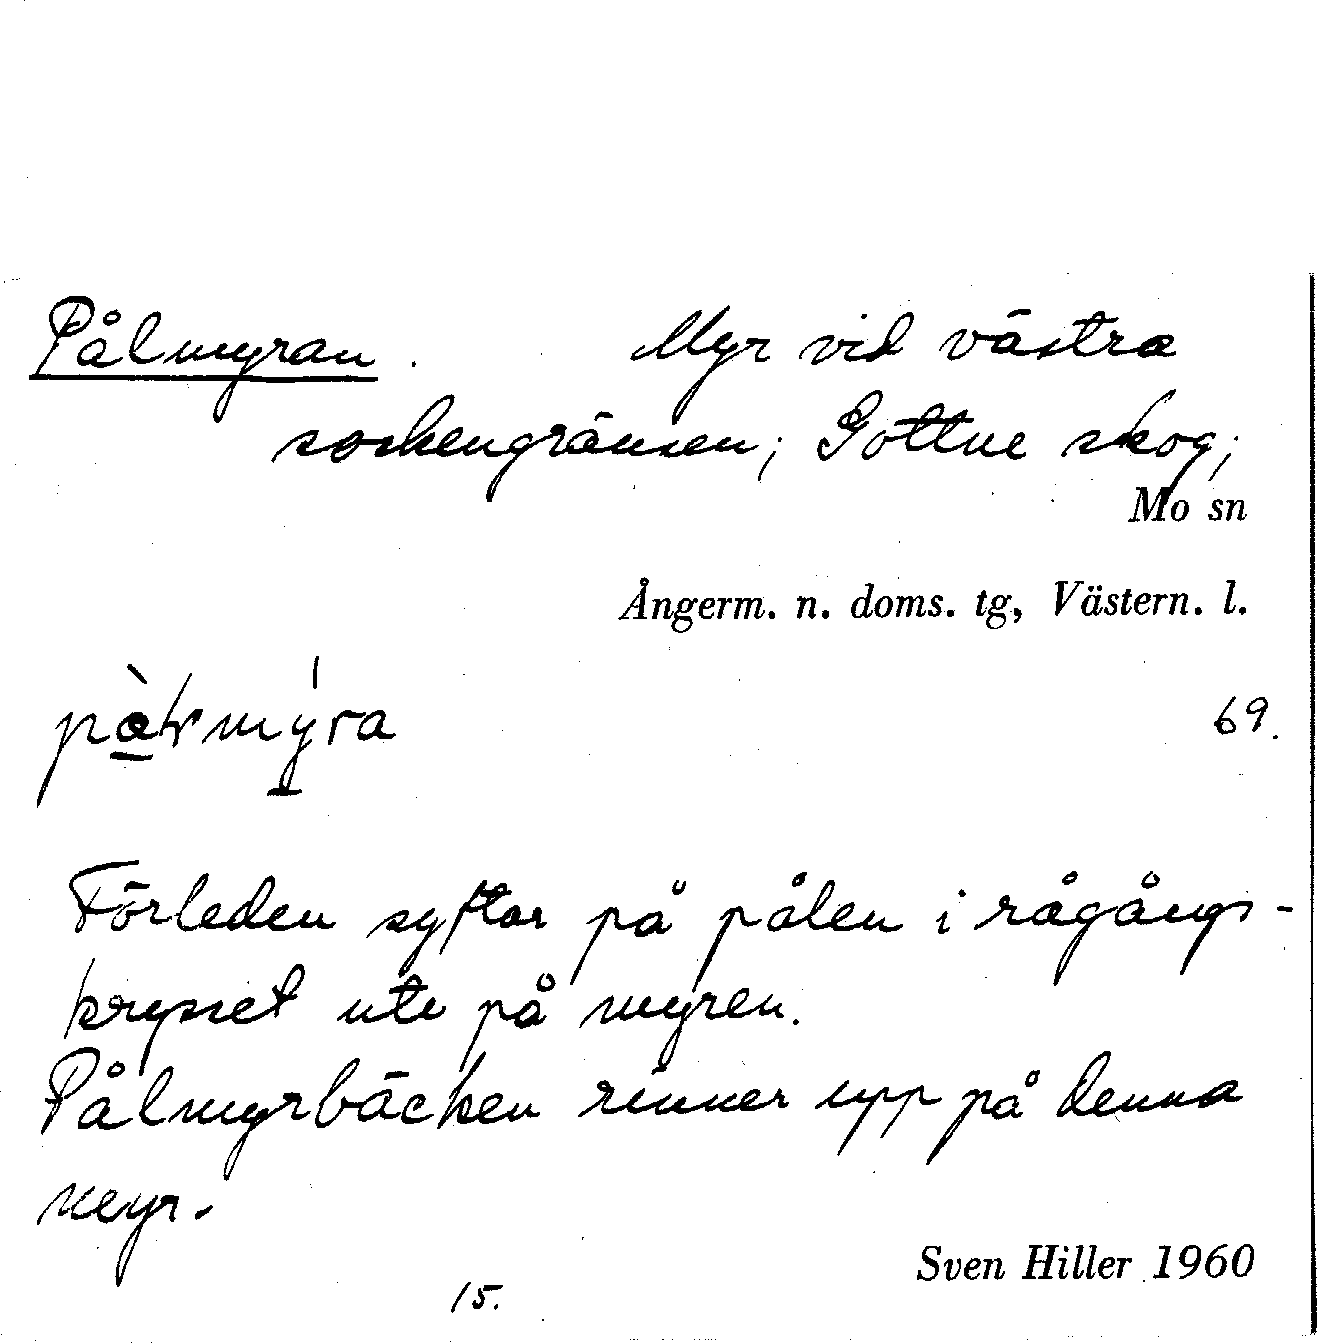 Pålmyran. Myr vid västra
sockengränsen; Gottne skog;
Mo sn
Ångerm. n. doms. tg, Västern. l.
69.
Förleden syftar på pålen i rågångs-
krysset ute på myren.
Pålmyrbäcken rinner upp på denna
myr.
Sven Hiller 1960
15.